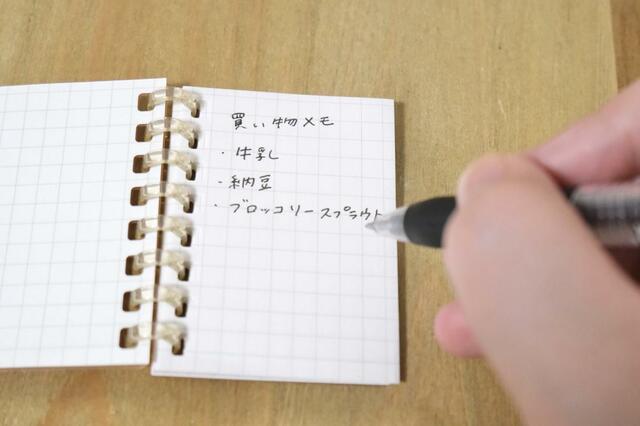 買い物メモ
・牛乳
・納豆
・ブロッコリースプラウト